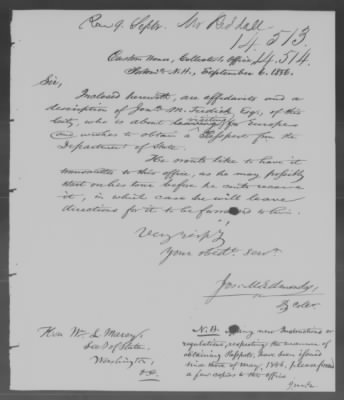 Rec 9. Septr. Mr Bedhall
14.513
14.514
Custom House, Collector's Office,
N.H., September 6. 1856.
Sir,
Inclosed herewith, are affidavits and a
description of Jon. M. Tredick Esq, of this
City, who is about leaving for Europe
and wishes to obtain a Passport from the
Department of State.
He wants to have it
transmitted to this office, as he may possibly
start on his tour before he can receive
it, in which case he will leave
directions for it to be forwarded to him.
Very resp'y
Your obedt. Servt.
Jos. M. Edmonds,
Hon Wm L. Marcy,
Secy of State.
Washington,
D.C.
N.B. If any new Instructions or
regulations, respecting the manner of
obtaining Passports, have been issued
since date of May, 1856, please forward
a few copies to this office.